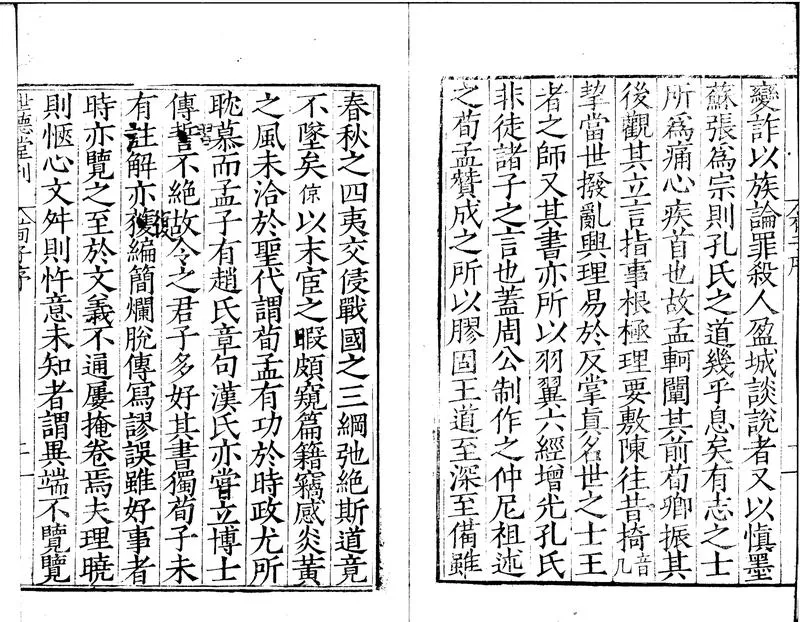 變詐以族論罪殺人盈城談說者又以慎墨
蘇張爲宗則孔氏之道幾乎息矣有志之士
所爲痛心疾首也故孟軻闡其前荀卿振其
後觀其立言指事根極理要敷陳往昔掎音几
挈當世撥亂興理易於反掌眞名世之士王
者之師又其書亦所以羽翼六經增光孔氏
非徒諸子之言也蓋周公制作之仲尼祖述
之荀孟贊成之所以膠固王道至深至備雖
春秋之四夷交侵戰國之三綱弛絶斯道竟
不墜矣倞以末宦之暇頗窺篇籍竊感炎黃
之風未洽於聖代謂荀孟有功於時政尤所
耽慕而孟子有趙氏章句漢氏亦嘗立博士
傳習不絶故今之君子多好其書獨荀子未
有註解亦復編簡爛脫傳寫謬誤雖好事者
時亦覽之至於文義不通屢掩卷焉夫理曉
則愜心文舛則忤意未知者謂異端不覽覽
世德堂刊
荀子序